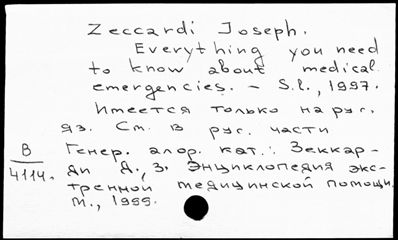 Zeccardi Joseph.
Everything you need
to know about medical
emergencies. – S.l., 1997.
Имеется только на рус.
яз. См. в рус. части
Генер. алф. кат.: Зеккар-
B
4114.
ди Д., З. Энциклопедия экс-
тренной медицинской помощи.
М., 1999.